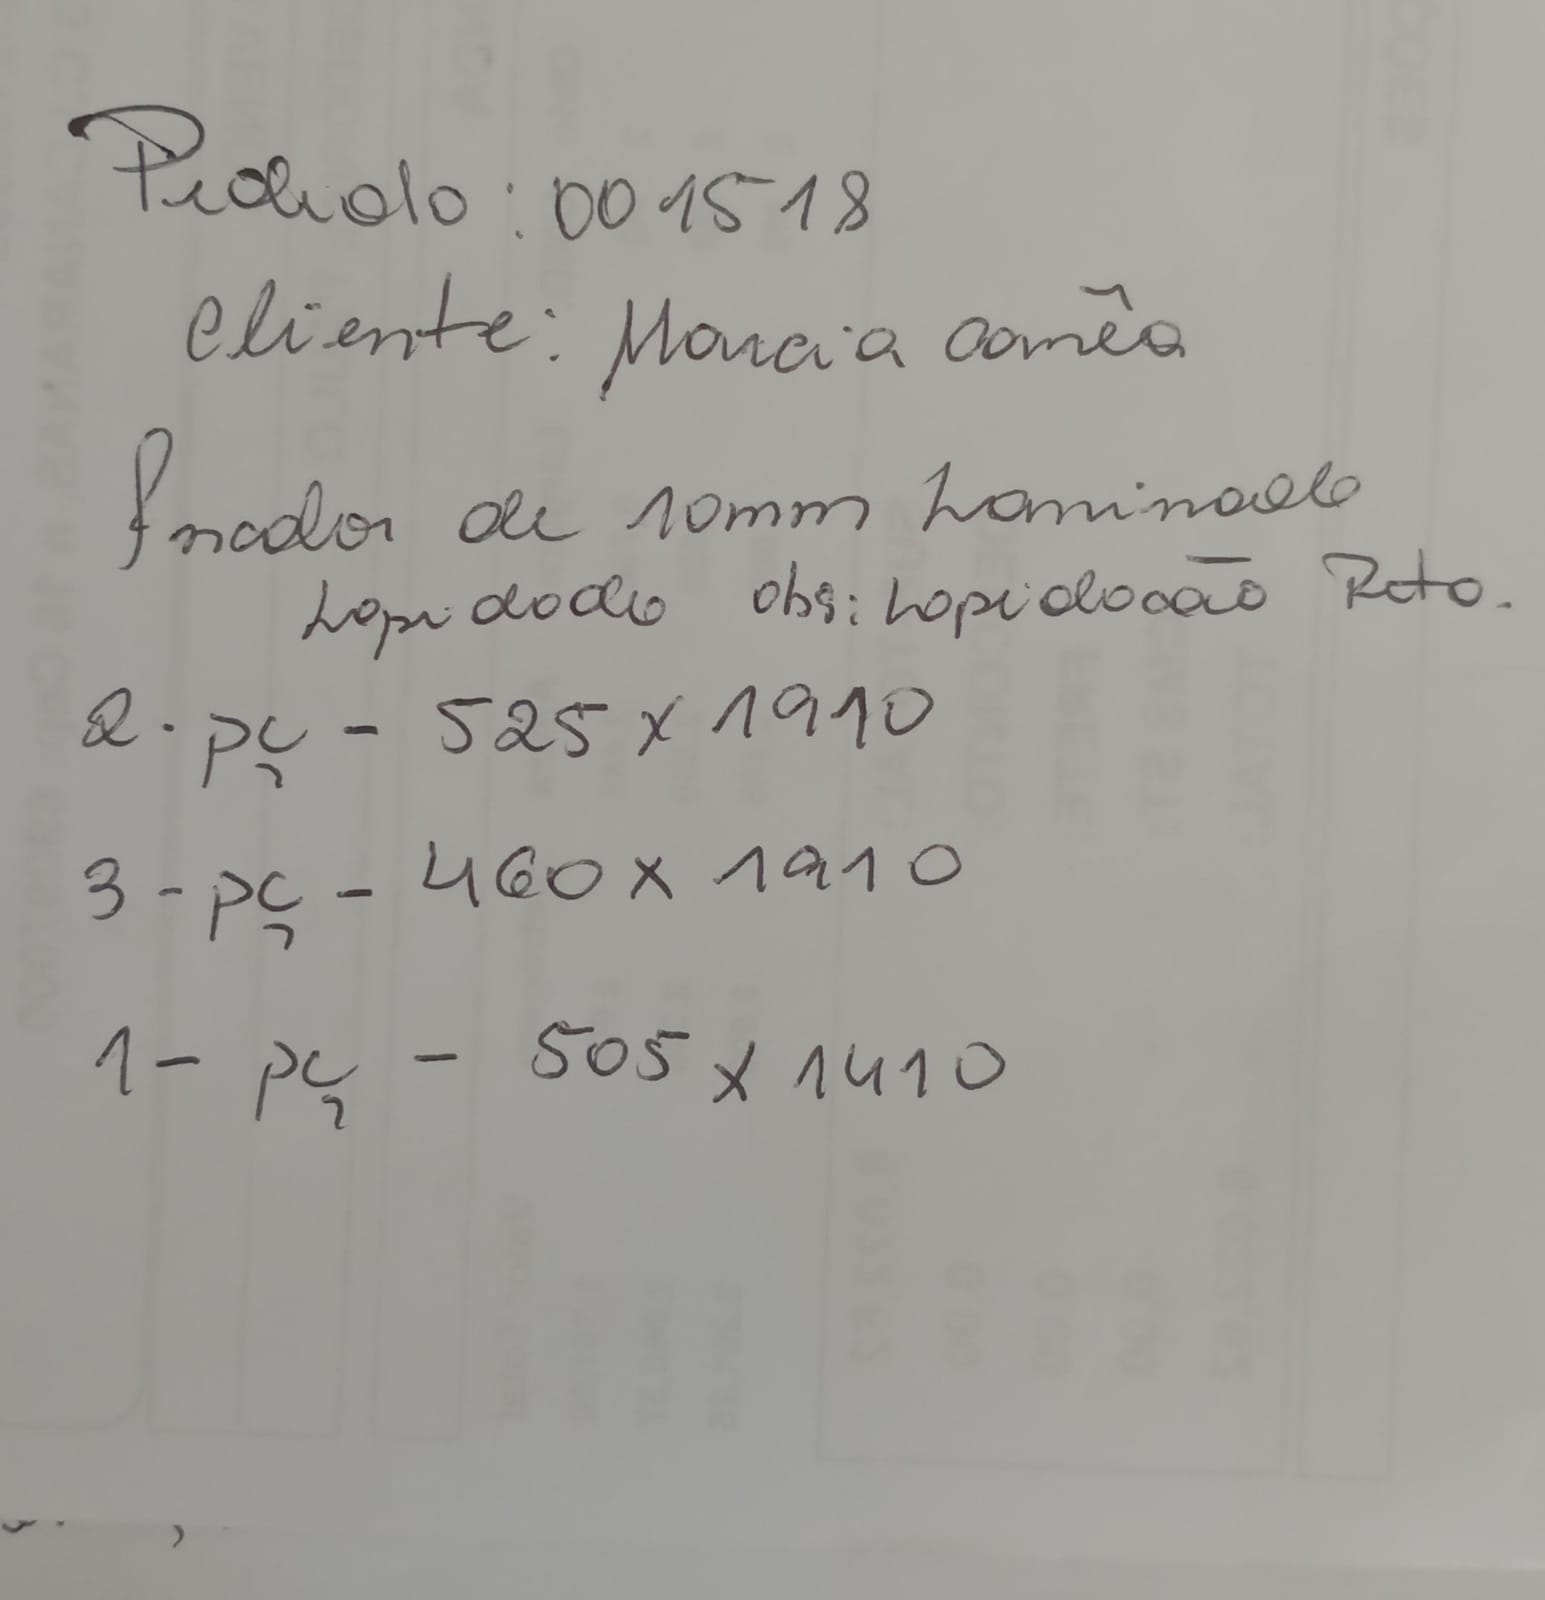 Pedido: 001518
Cliente: Marcia corrêa
Incolor de 10mm Laminado
Lapidado obs: Lapidacão Reto.
2 - pç - 525 x 1910
3 - pç - 460 x 1910
1 - pç - 505 x 1410